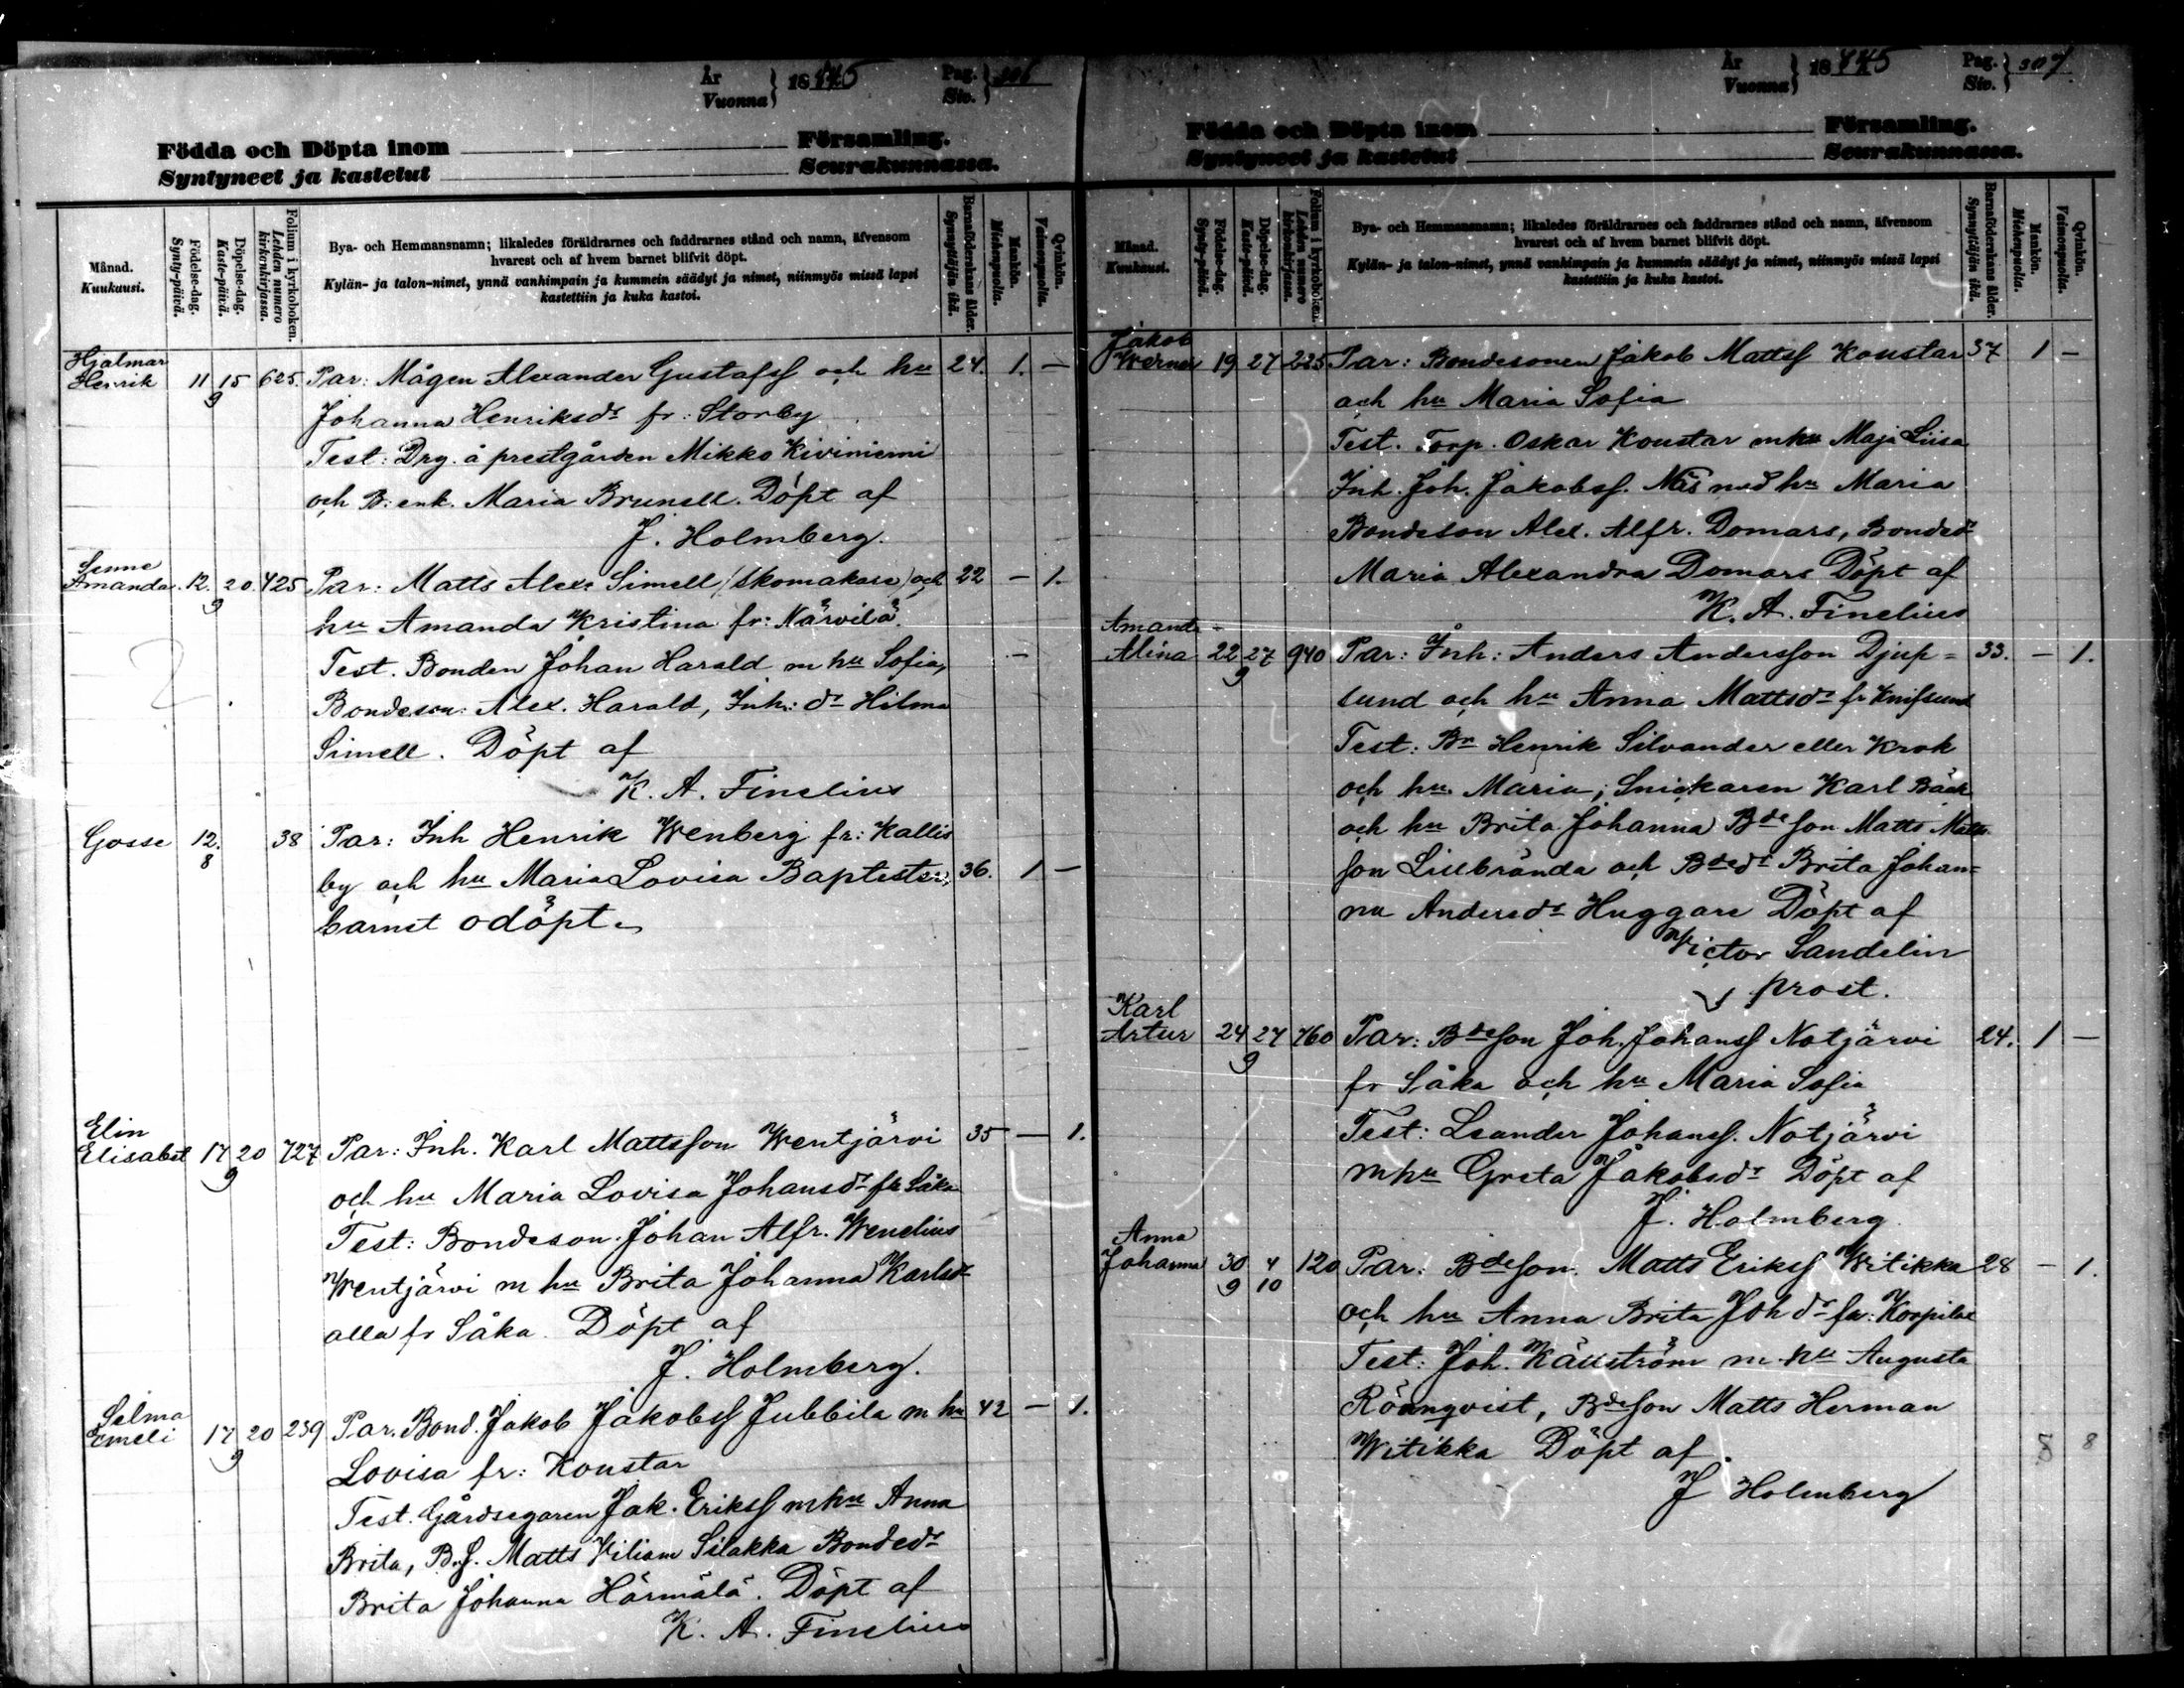 År
Vuonna
18
Pag.
Siv.
306
Födda och Döpta inom Församling.
Syntyneet ja kastetut Seurakunnassa.
Månad.
Kuukausi.
Födelse-dag.
Synty-päivä.
Döpelse-dag.
Kaste-päivä.
Folium i kyrkoboken.
Lehden numero kirkonkirjassa.
Bya- och Hemmansnamn; likaledes föräldrarnes och faddrarnes stånd och namn, äfvensom
hvarest och af hvem barnet blifvit döpt.
Kylän- ja talon-nimet, ynnä vanhimpain ja kummein säädyt ja nimet, niinmyös missä lapsi
kastettiin ja kuka kastoi.
Barnaföderskans ålder.
Synnyttäjän ikä.
Mankön.
Miehenpuolia.
Qvinkön.
Vaimonpuolia.
Hjalmar
Henrik 11 15 625. Par: Mågen Alexander Gustafss och hu 24. 1. —
9
Johanna Henriksdr fr: Storby
Test: Drg. å prestgården Mikko Kiviniemi
och B: enk. Maria Brunell. Döpt af
J. Holmberg.
Senne
Amanda. 12. 20. 425 Par: Matts Alexr Simell (skomakare) och 22 — 1.
9
hu Amanda Kristina fr: Närvilä.
Test. Bonden Johan Harald m hu Sofia,
Bondeson: Alex. Harald, Inh: dr Hilma
Simell. Döpt af
K. A. Finelius
Gosse 12. 38 Par: Inh Henrik Wenberg fr: Kallis
8
by och hu Maria Lovisa Baptister, 36. 1 —
barnet odöpt.
Elin
Elisabet 17 20 727 Par: Inh. Karl Mattsson Wentjärvi 35 — 1.
9
och hu Maria Lovisa Johansdr fr Såka
Test: Bondeson. Johan Alfr. Wenelius
Wentjärvi m hu Brita Johanna Karlsdr
alla fr Såka. Döpt af
J. Holmberg.
Selma
Emeli 17 20 239 Par. Bond. Jakob Jakobss Jubbila m hu 42 — 1.
9
Lovisa fr: Koustar
Test. Gårdsegaren Jak. Erikss m hu Anna
Brita, B.s. Matts Viliam Silakka Bondedr
Brita Johanna Härmälä. Döpt af
K. A. Finelius
År
Vuonna
18
Pag.
Siv.
307
Födda och Döpta inom Församling.
Syntyneet ja kastetut Seurakunnassa.
Månad.
Kuukausi.
Födelse-dag.
Synty-päivä.
Döpelse-dag.
Kaste-päivä.
Folium i kyrkoboken.
Lehden numero kirkonkirjassa.
Bya- och Hemmansnamn; likaledes föräldrarnes och faddrarnes stånd och namn, äfvensom
hvarest och af hvem barnet blifvit döpt.
Kylän- ja talon-nimet, ynnä vanhimpain ja kummein säädyt ja nimet, niinmyös missä lapsi
kastettiin ja kuka kastoi.
Barnaföderskans ålder.
Synnyttäjän ikä.
Mankön.
Miehenpuolia.
Qvinkön.
Vaimonpuolia.
Jakob
Werner 19 27 225 Par: Bondesonen Jakob Mattss Koustar 37 1 —
och hu Maria Sofia
Test. Torp. Oskar Koustar m hu Maja Liisa
Inh. Joh. Jakobss. Näs med hu Maria
Bondeson Alex. Alfr. Domars, Bondedr
Maria Alexandra Domars Döpt af
K. A. Finelius
Amanda
Alina 22 27 940 Par: Inh: Anders Andersson Djup= 33. — 1.
9
sund och hu Anna Mattsdr fr Knifsund
Test: Bn Henrik Silvander eller Krok
och hu Maria; Snickaren Karl Bäck
och hu Brita Johanna Bdeson Matts Matts
son Lillbrända och Bdedr Brita Johan=
na Andersdr Huggare Döpt af
Victor Sandelin
prost.
Karl
Artur 24 27 760 Par: Bdeson Joh. Johanss Notjärvi 24. 1 —
9
fr Såka och hu Maria Sofia
Test: Leander Johanss. Notjärvi
m hu Greta Jakobsdr Döpt af
J. Holmberg
Anna
Johanna 30 4 120 Par: Bdeson. Matts Erikss Witikka 28 — 1.
9 10
och hu Anna Brita Joh dr fr: Korpilax
Test: Joh. Källström m. hu Augusta
Rönnqvist, Bdeson Matts Herman
Witikka Döpt af
J Holmberg
8